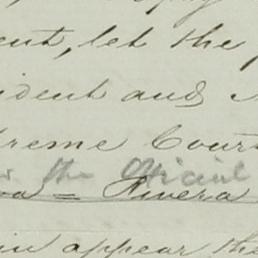 ent, let the
ident and
reme Court
the Official
va = Rivera
in appear the